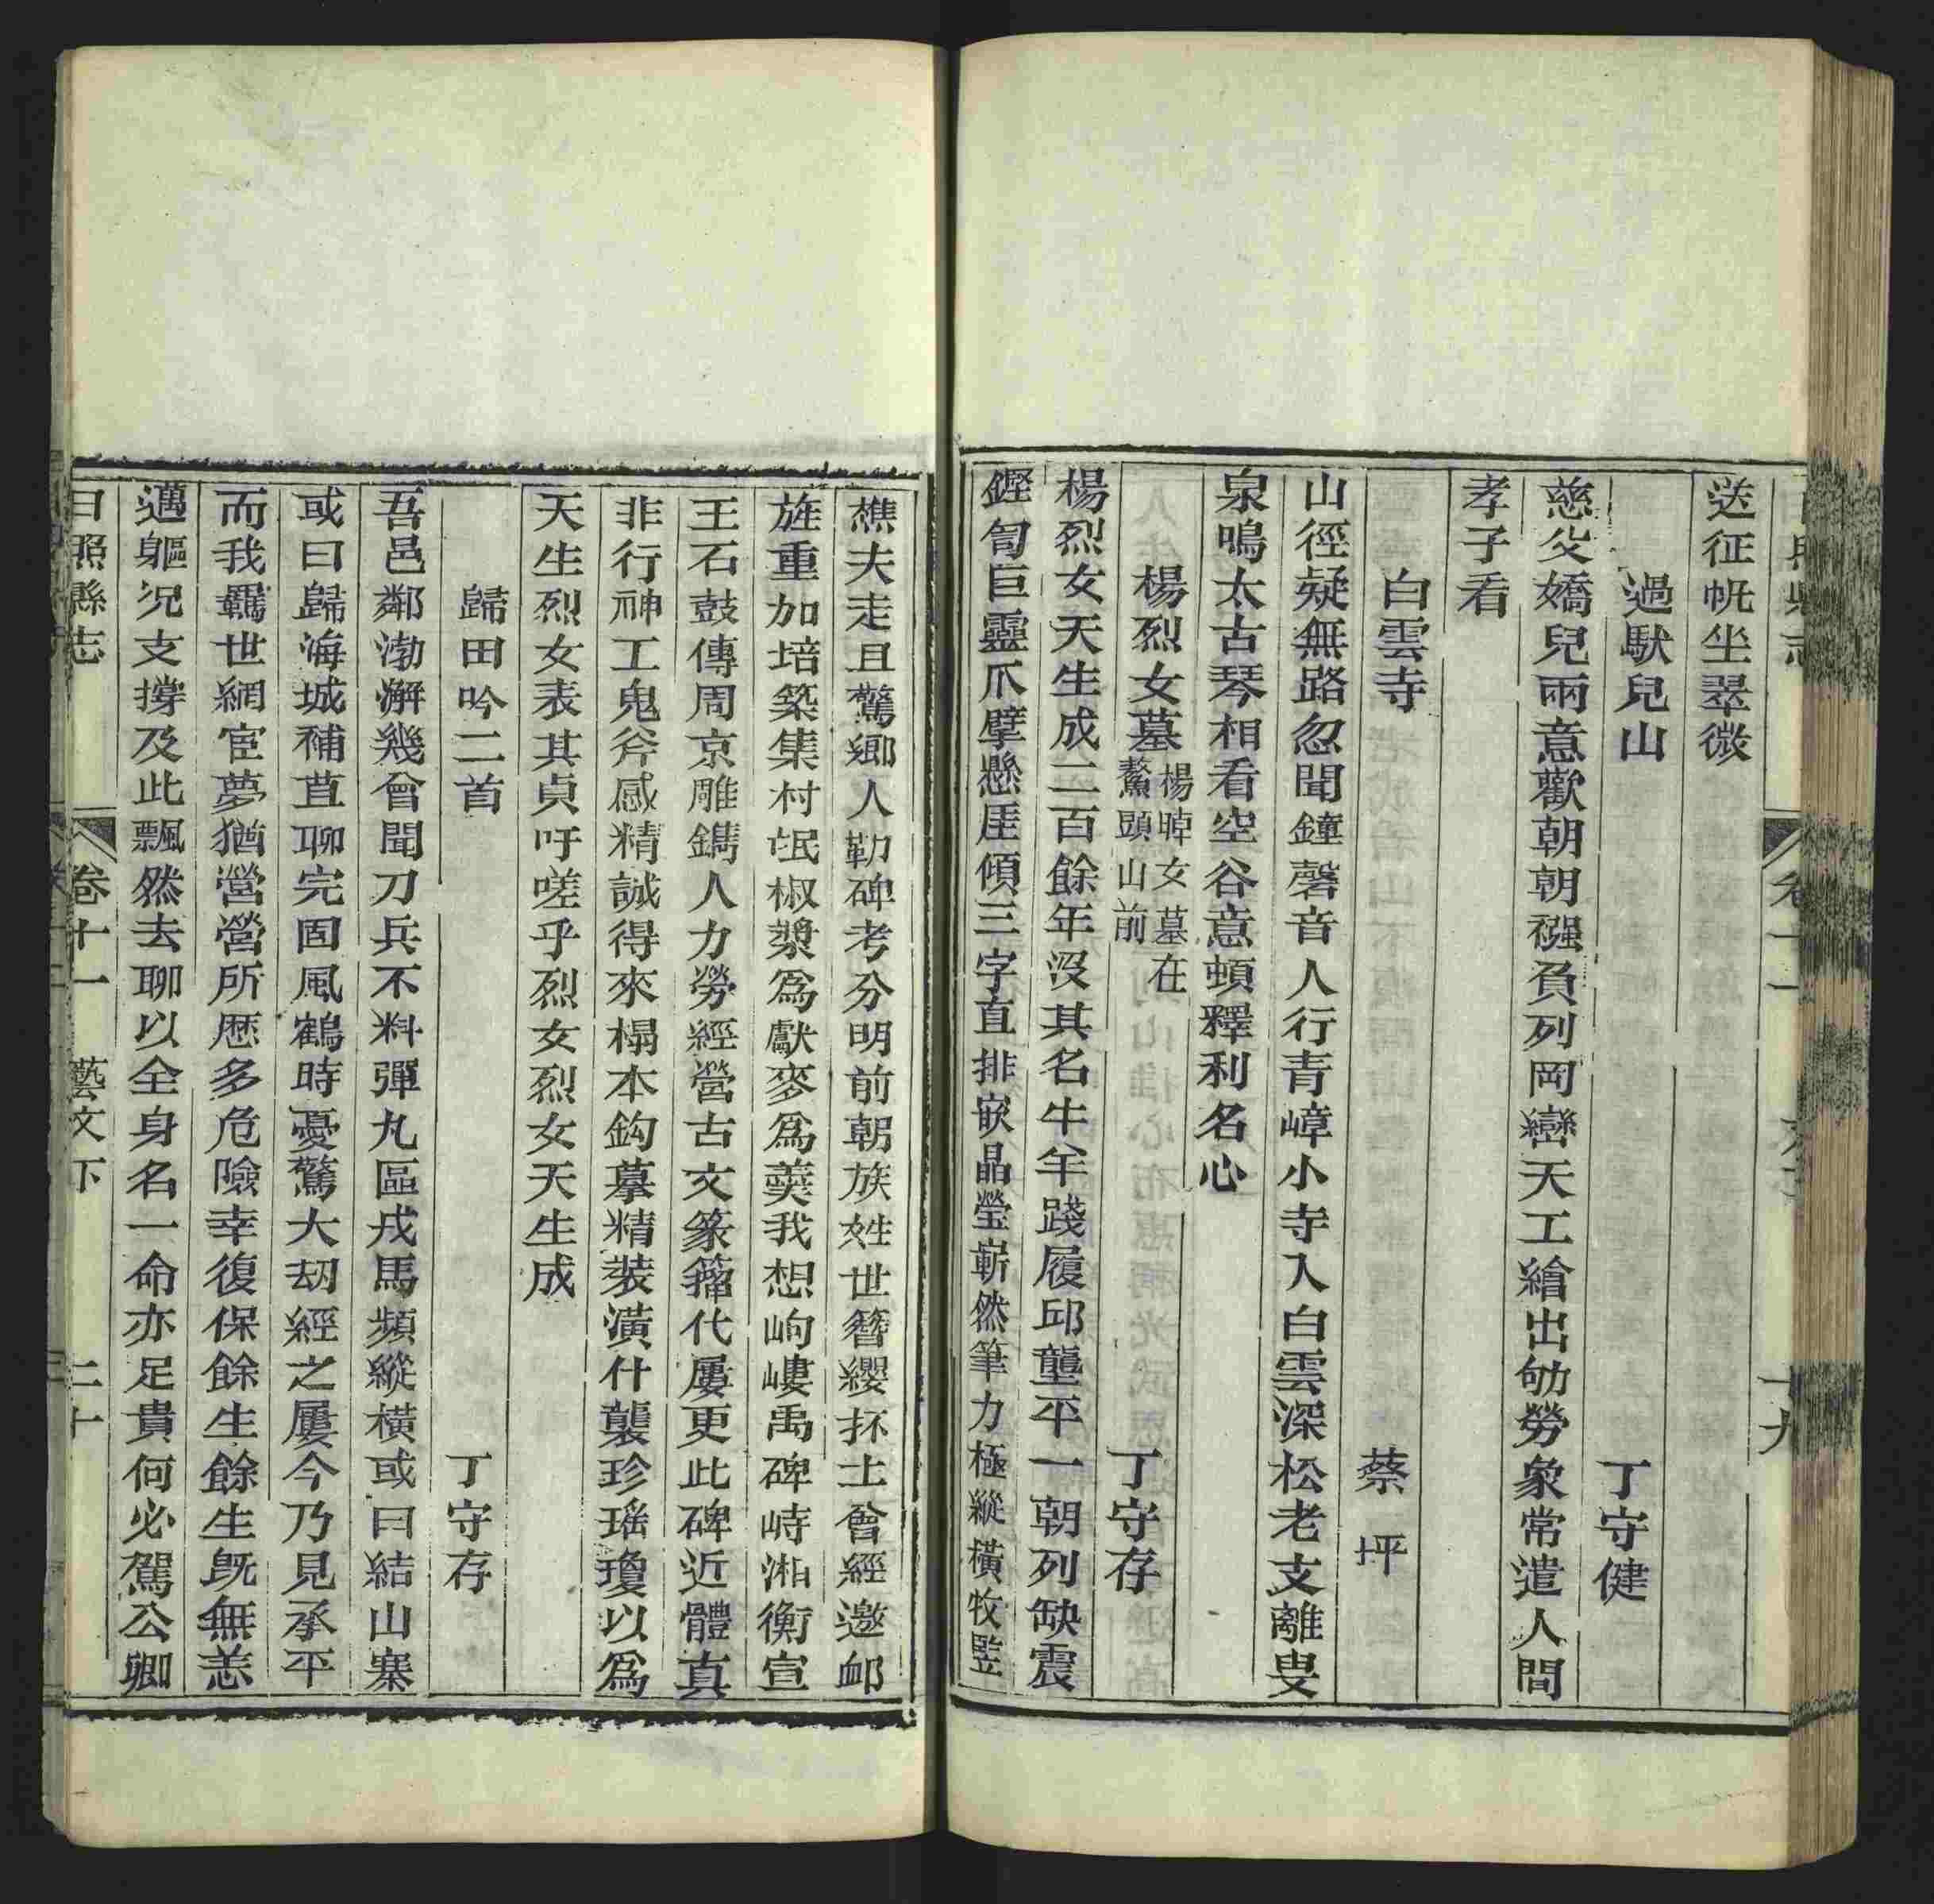 日照縣志 卷十一 十九
送征帆坐翠微
過馱兒山 丁守健
慈父嬌兒兩意歡朝朝襁負列岡巒天工繪出劬勞象常遣人間
孝子看
白雲寺 蔡坪
山徑疑無路忽聞鐘磬音人行青嶂小寺入白雲深松老支離叟
泉鳴太古琴相看空谷意頓釋利名心
楊烈女墓 楊晫女墓在鰲頭山前 丁守存
楊烈女天生成二百餘年沒其名牛羊踐履邱壟平一朝列缺震
鏗訇巨靈爪擘懸厓傾三字直排嵌晶瑩嶄然筆力極縱橫牧豎
樵夫走且驚鄉人勒碑考分明前朝族姓世簪纓抔土會經邀卹
旌重加培築集村氓椒漿爲獻麥爲羹我想岣嶁禹碑峙湘衡宣
王石鼓傳周京雕鐫人力勞經營古文篆籀代屢更此碑近體真
非行神工鬼斧感精誠得來榻本鈎摹精裝潢什襲珍瑤瓊以爲
天生烈女表其貞吁嗟乎烈女烈女天生成
歸田吟二首 丁守存
吾邑鄰渤澥幾會聞刀兵不料彈丸區戎馬頻縱橫或曰結山寨
或曰歸海城補苴聊完固風鶴時憂驚大刼經之屢今乃見承平
而我羈世網宦夢猶營營所歷多危險幸復保餘生餘生旣無恙
邁軀况支撐及此飄然去聊以全身名一命亦足貴何必駕公卿
日照縣志 卷十一 藝文下 二十